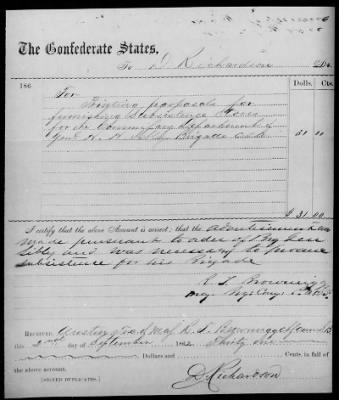 The Confederate States,
To D. Richardson Dr.
186 Dolls. Cts.
For
Printing proposals for
furnishing Subsistence Stores
for the Commissary Department of
Genl H. H. Sibley Brigade 31 00
$ 31 00
I certify that the above Amount is correct; that the advertisement was
made pursuant to order of Brig Genl
Sibley and was necessary to procure
subsistence for his Brigade
R. T. Brownrigg
Maj
Received, Austin of Maj R. T. Brownrigg
this 2nd day of September 1862, Thirty one
Dollars and Cents, in full of
the above account.
(SIGNED DUPLICATES.) D. Richardson